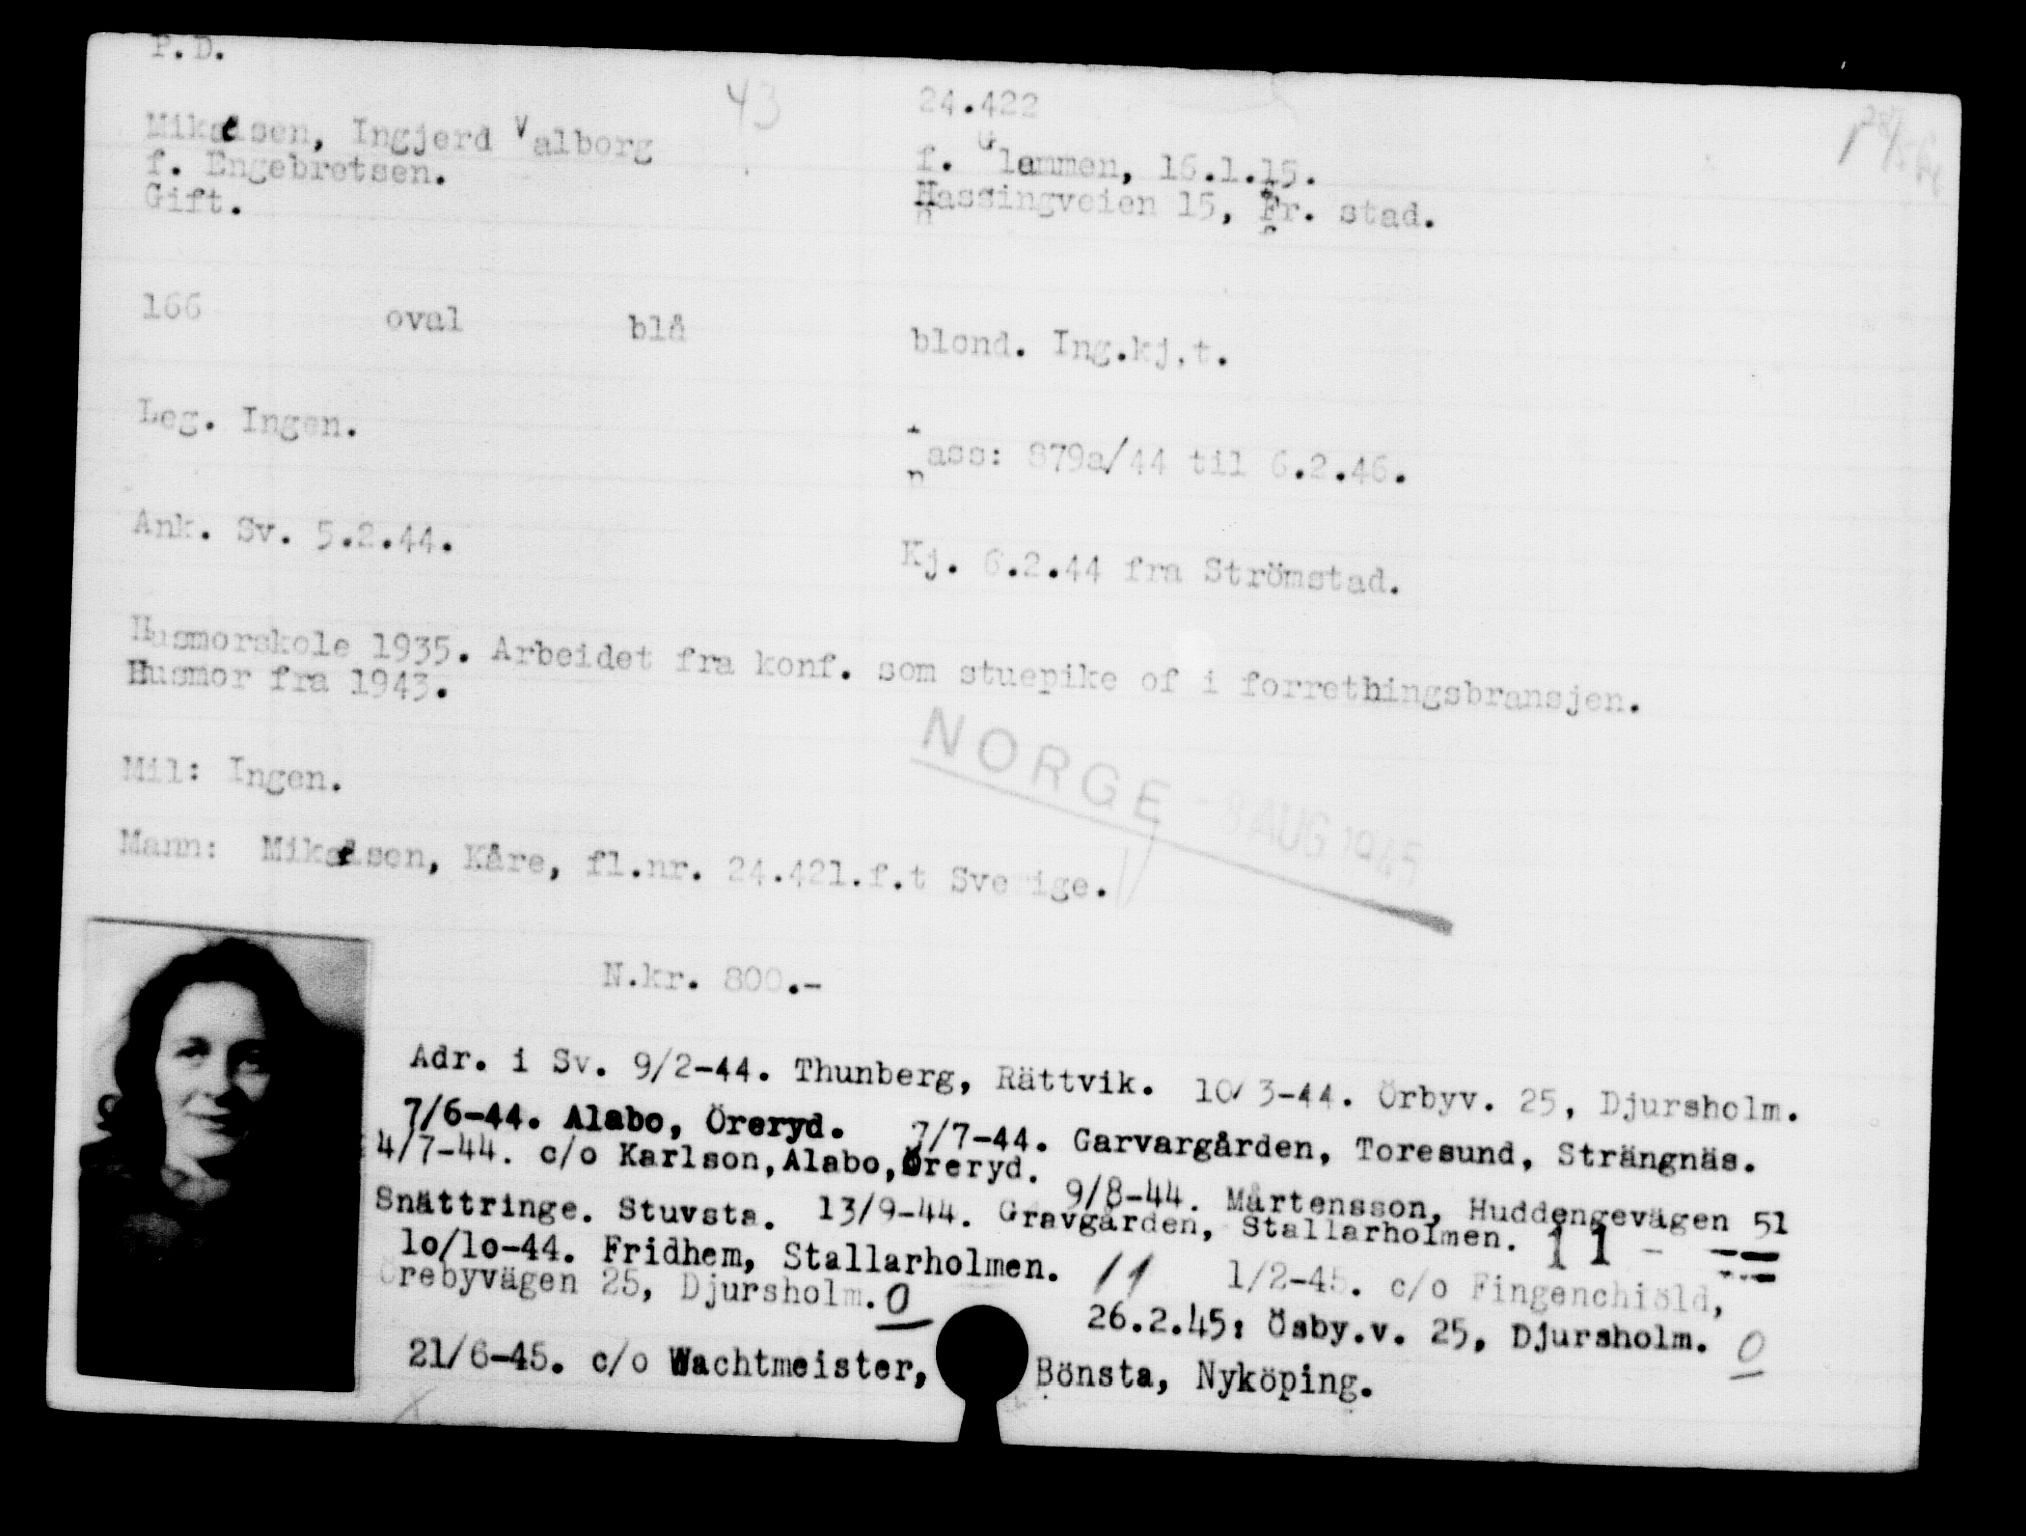 P.D.
43
24.422
Mikaelsen, Ingjerd Valborg
f. Glemmen, 16.1.15.
f. Engebretsen.
Hassingveien 15, Fr. stad.
Gift.
166 oval blå blond. Ing.kj.t.
Leg. Ingen.
Pass: 879a/44 til 6.2.46.
Ank. Sv. 5.2.44.
Kj. 6.2.44 fra Strömstad.
Husmorskole 1935. Arbeidet fra konf. som stuepike of i forrethingsbransjen.
Husmor fra 1943.
NORGE - 8 AUG 1945
Mil: Ingen.
Mann: Mikaelsen, Kåre, fl.nr. 24.421.f.t Sve ige.
N.kr. 800.-
Adr. i Sv. 9/2-44. Thunberg, Rättvik. 10/3-44. Örbyv. 25, Djursholm.
7/6-44. Alabo, Öreryd. 7/7-44. Garvargården, Toresund, Strängnäs.
4/7-44. c/o Karlson, Alabo, Öreryd.
9/8-44. Mårtensson, Huddengevägen 51
Snättringe. Stuvsta. 13/9-44. Gravgården, Stallarholmen. 11 - -=
10/10-44. Fridhem, Stallarholmen. 11 1/2-45. c/o Fingenchiöld,
Örebyvägen 25, Djursholm. 0
26.2.45: Ösby.v. 25, Djursholm. 0
21/6-45. c/o Wachtmeister, Bönsta, Nyköping.